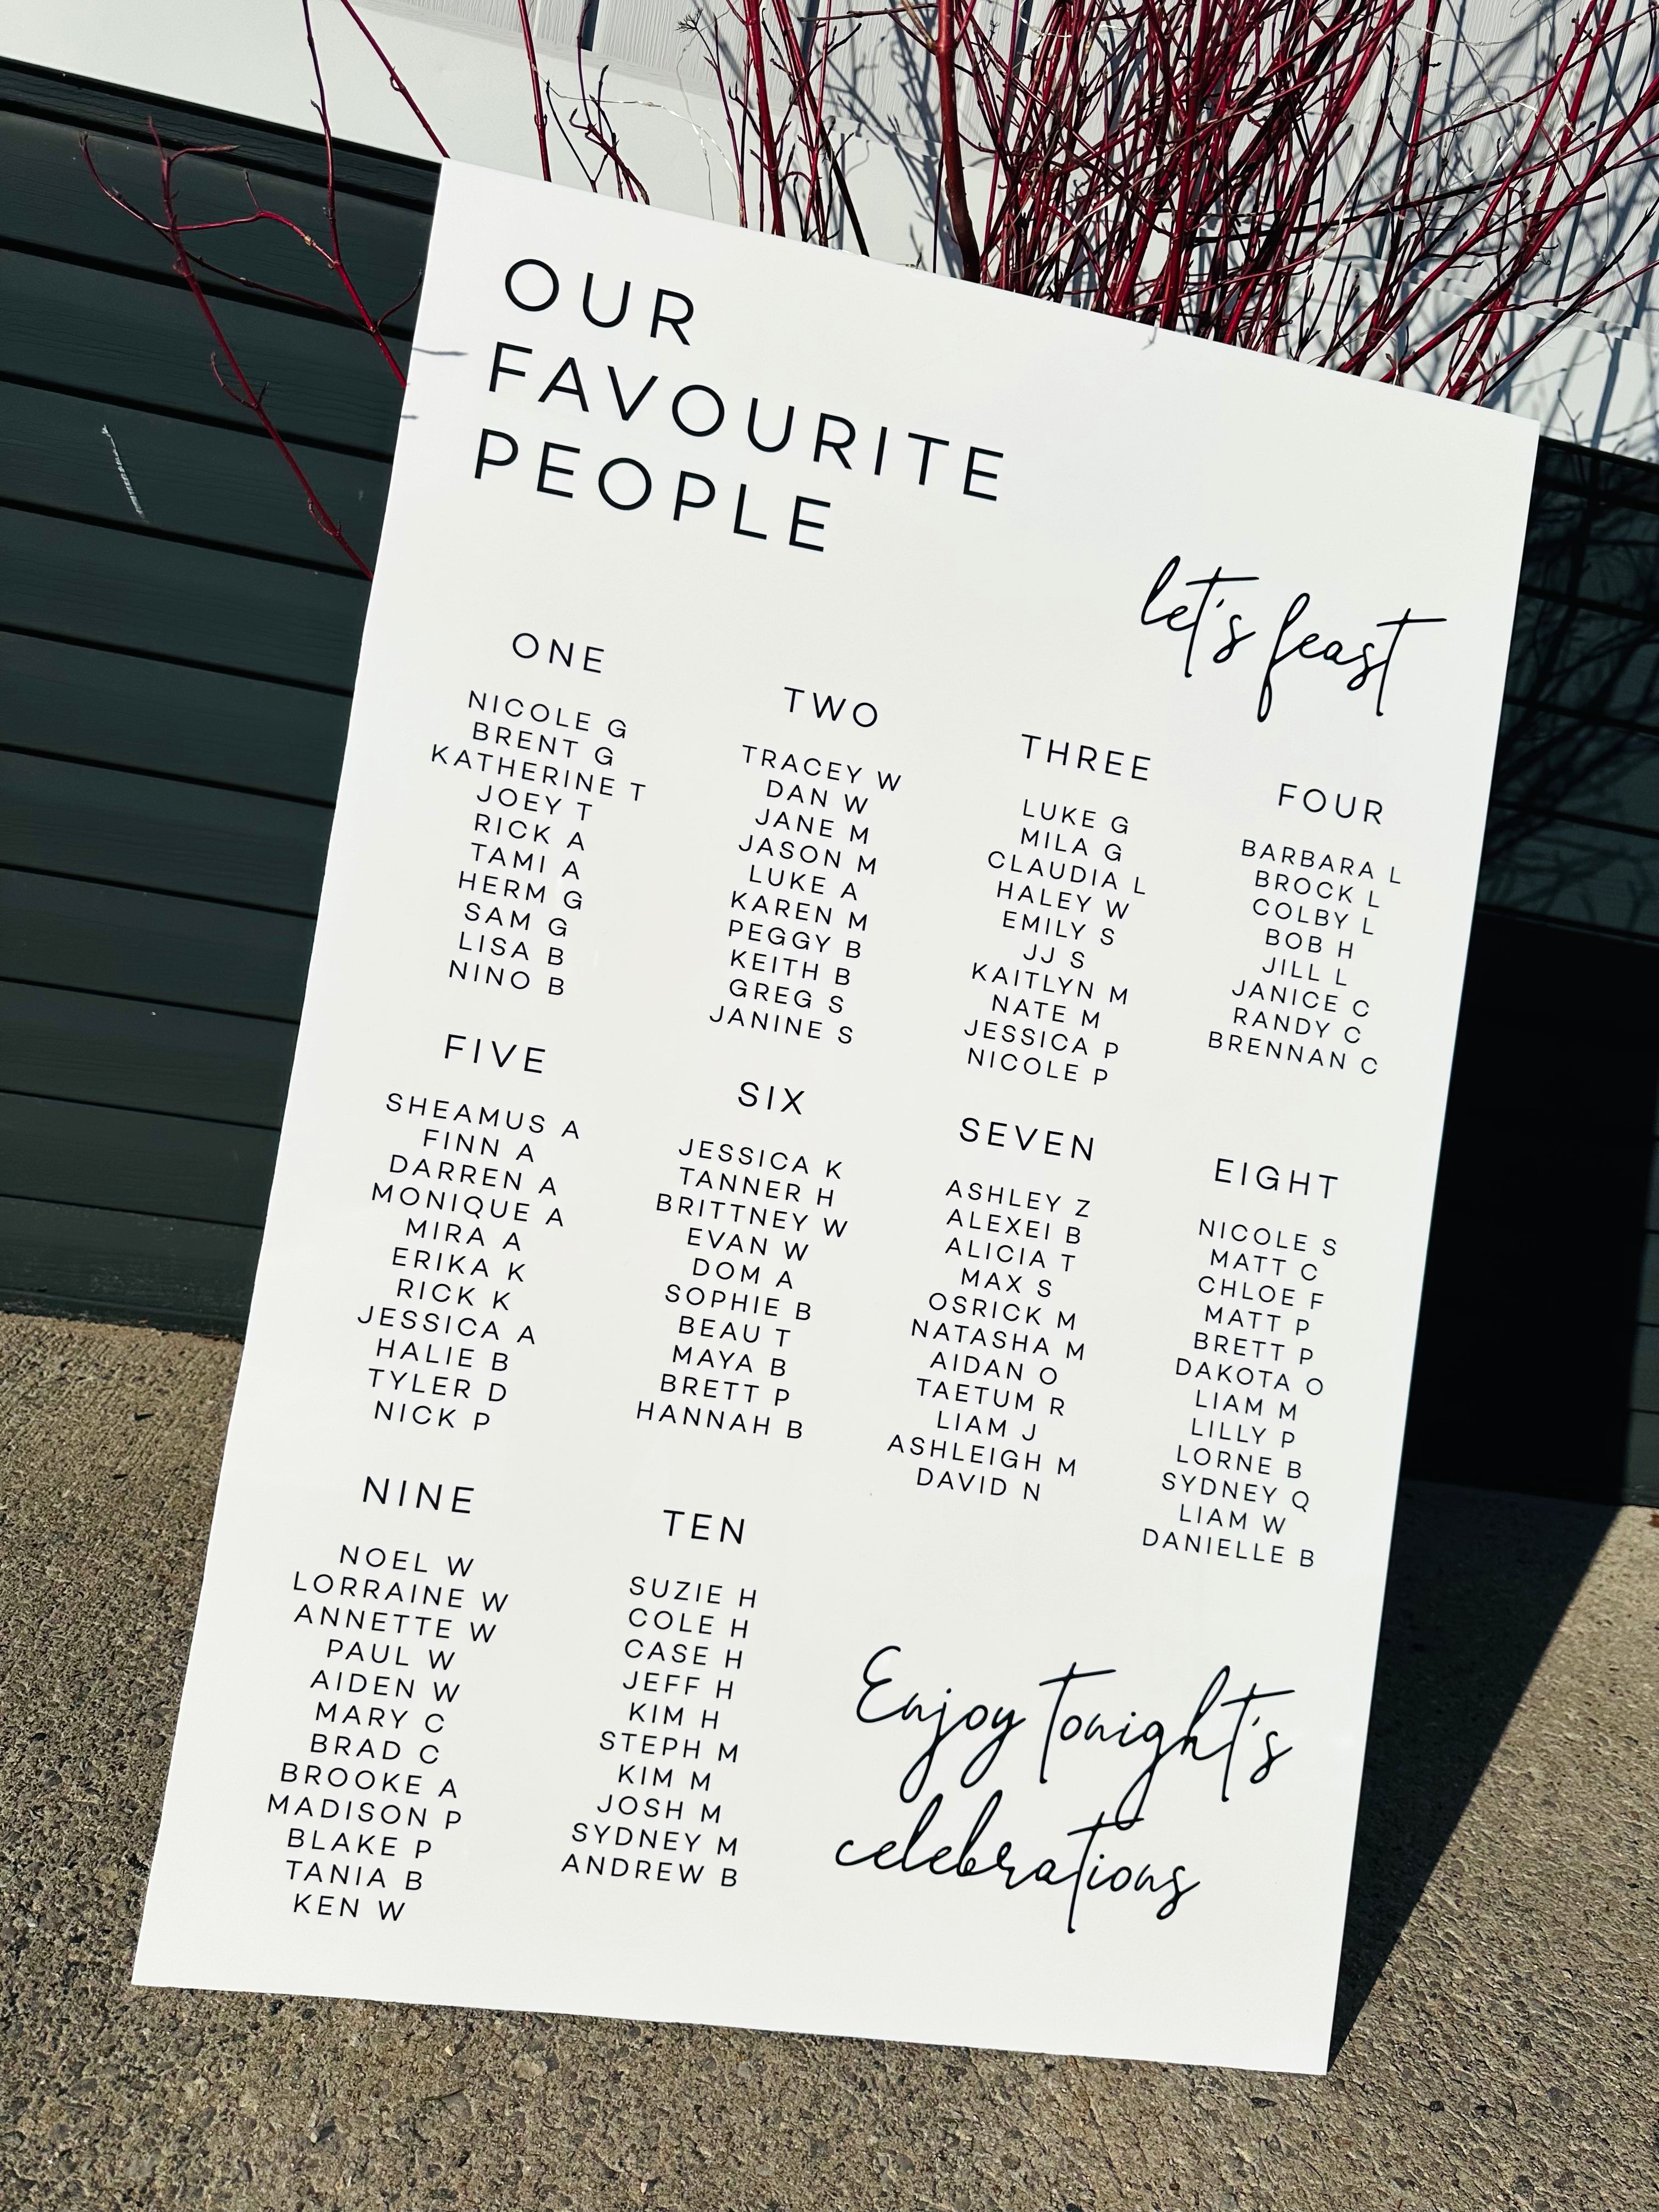 OUR
FAVOURITE
PEOPLE
let's feast
ONE
NICOLE G
BRENT G
KATHERINE T
JOEY T
RICK A
TAMI A
HERM G
SAM G
LISA B
NINO B
TWO
TRACEY W
DAN W
JANE M
JASON M
LUKE A
KAREN M
PEGGY B
KEITH B
GREG S
JANINE S
THREE
LUKE G
MILA G
CLAUDIA L
HALEY W
EMILY S
JJ S
KAITLYN M
NATE M
JESSICA P
NICOLE P
FOUR
BARBARA L
BROCK L
COLBY L
BOB H
JILL L
JANICE C
RANDY C
BRENNAN C
FIVE
SHEAMUS A
FINN A
DARREN A
MONIQUE A
MIRA A
ERIKA K
RICK K
JESSICA A
HALIE B
TYLER D
NICK P
SIX
JESSICA K
TANNER H
BRITTNEY W
EVAN W
DOM A
SOPHIE B
BEAU T
MAYA B
BRETT P
HANNAH B
SEVEN
ASHLEY Z
ALEXEI B
ALICIA T
MAX S
OSRICK M
NATASHA M
AIDAN O
TAETUM R
LIAM J
ASHLEIGH M
DAVID N
EIGHT
NICOLE S
MATT C
CHLOE F
MATT P
BRETT P
DAKOTA O
LIAM M
LILLY P
LORNE B
SYDNEY Q
LIAM W
DANIELLE B
NINE
NOEL W
LORRAINE W
ANNETTE W
PAUL W
AIDEN W
MARY C
BRAD C
BROOKE A
MADISON P
BLAKE P
TANIA B
KEN W
TEN
SUZIE H
COLE H
CASE H
JEFF H
KIM H
STEPH M
KIM M
JOSH M
SYDNEY M
ANDREW B
Enjoy tonight's
celebrations